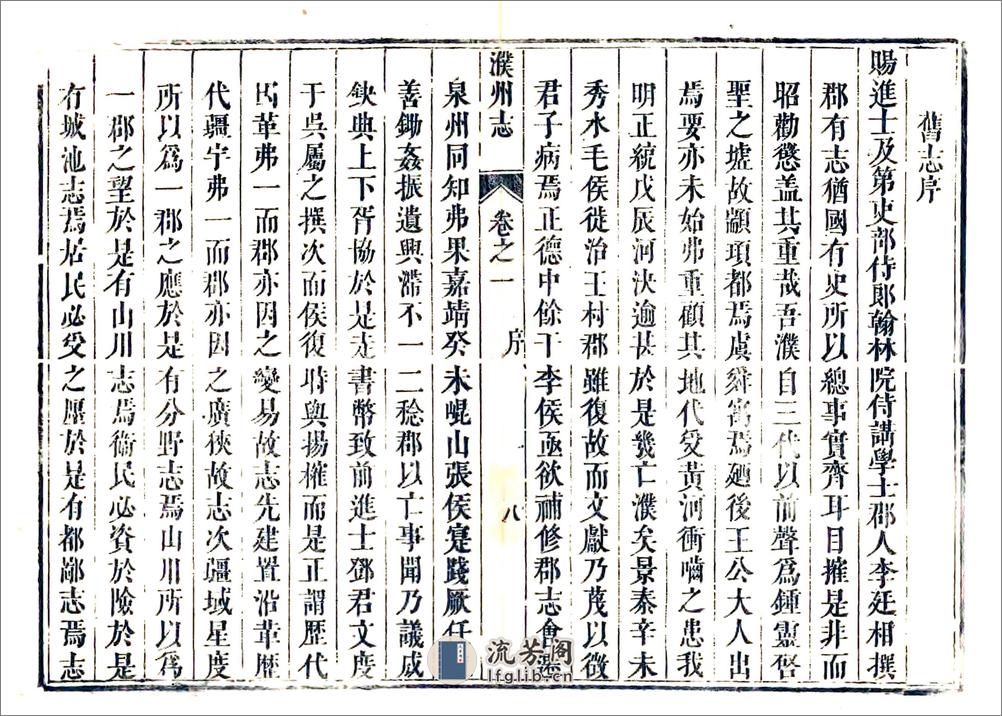 舊志序
賜進士及第吏部侍郎翰林院侍講學士郡人李廷相撰
郡有志猶國有史所以總事實齊耳目摧是非而
昭勸懲盖其重哉吾濮自三代以前聲爲鍾靈啓
聖之墟故顓頊都焉虞舜寓焉廼後王公大人出
焉要亦未始弗重顧其地代受黃河衝嚙之患我
明正統戊辰河決逾甚於是幾亡濮矣景泰辛未
秀水毛侯徙治王村郡雖復故而文獻乃茂以徵
君子病焉正德中餘干李侯亟欲補修郡志會
濮州志 卷之一 序 八
泉州同知弗果嘉靖癸未崐山張侯寔踐厥任
善鋤姦振遺興滯不一二稔郡以亡事聞乃議成
鈌典上下胥協於是走書幣致前進士鄧君文度
于吳屬之撰次而侯復時與揚榷而是正謂歷代
因革弗一而郡亦因之變易故志先建置沿革歷
代疆宇弗一而郡亦因之廣狹故志次疆域星度
所以爲一郡之應於是有分野志焉山川所以爲
一郡之望於是有山川志焉衛民必資於險於是
有城池志焉居民必受之廛於是有都鄙志焉志
流芳阁
lfglib.com